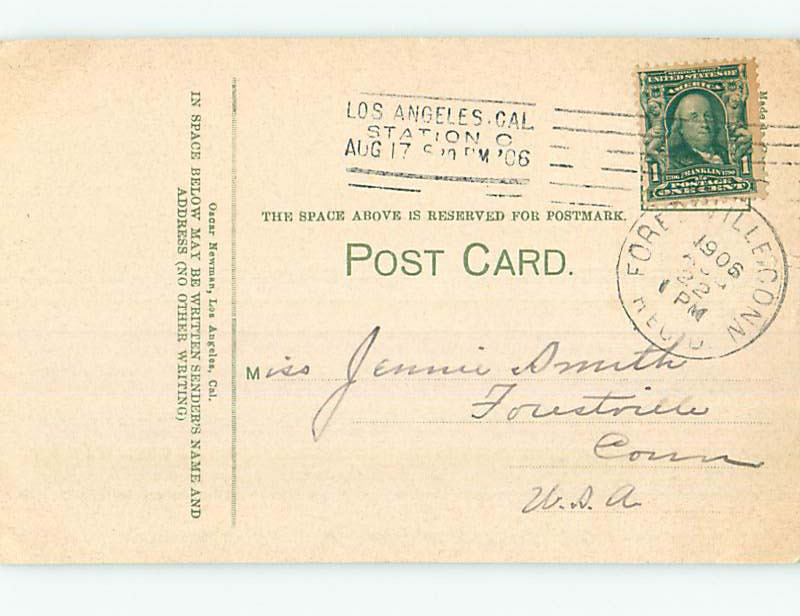 LOS ANGELES, CAL
STATION C
AUG 17 PM '06
SERIES 1902
UNITED STATES OF
AMERICA
1 1
FRANKLIN
POSTAGE
ONE CENT
Made
THE SPACE ABOVE IS RESERVED FOR POSTMARK.
POST CARD.
FORESTVILLE, CONN
1906
AUG
22
1 PM
REC'D.
Miss Jennie Smith
Forestville
Conn
U.S.A
Oscar Newman, Los Angeles, Cal.
IN SPACE BELOW MAY BE WRITTEN SENDER'S NAME AND
ADDRESS (NO OTHER WRITING)